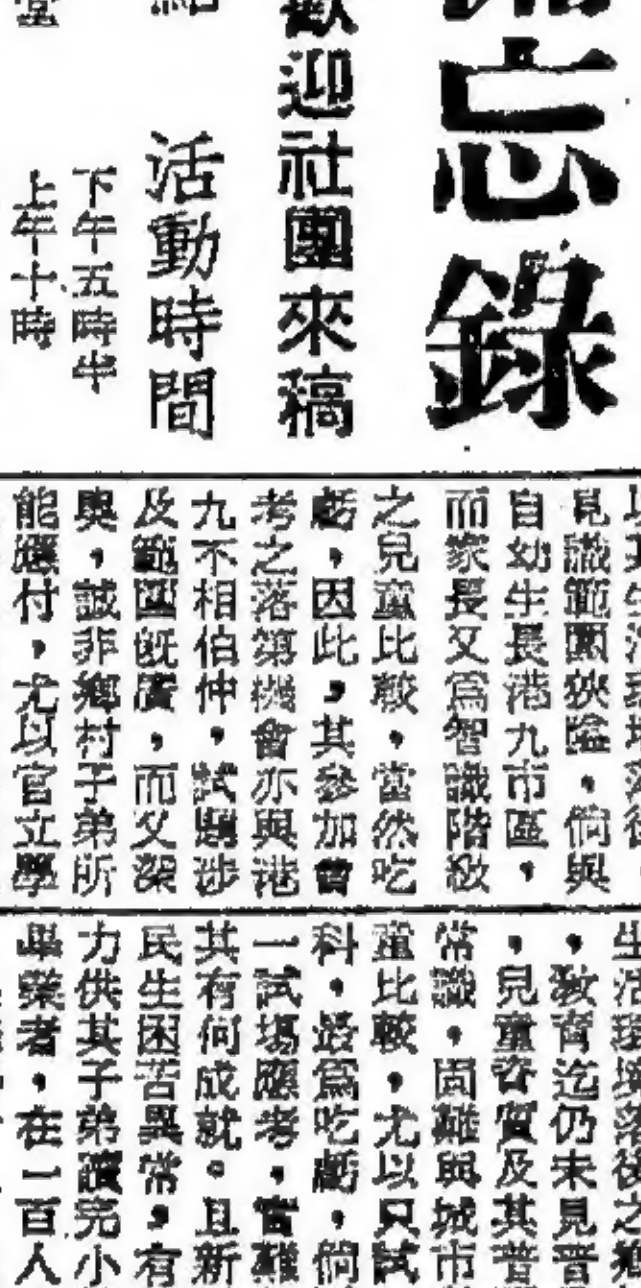 備忘錄
歡迎社團來稿
活動時間
下午五時半
上午十時
見識範圍狹隘,倘與
自幼生長港九市區,
而家長又爲智識階級
之兒童比較,當然吃
虧,因此,其參加會
考之落第機會亦與港
九不相伯仲,試題涉
及範圍既廣,而又深
奧,誠非鄉村子弟所
能應付,尤以官立學
生活環境落後之鄉
,教育迄仍未見普
,兒童資質及其普
常識,固難與城市
童比較,尤以只試
科,最爲吃虧,倘
一試場應考,實難
其有何成就。且新
民生困苦異常,有
力供其子弟讀完小
畢業者,在一百人